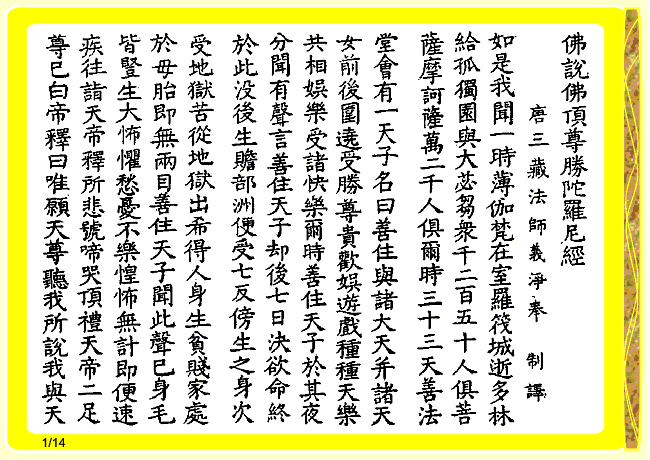 佛說佛頂尊勝陀羅尼經
唐三藏法師義淨奉 制譯
如是我聞一時薄伽梵在室羅筏城逝多林
給孤獨園與大苾芻眾千二百五十人俱菩
薩摩訶薩萬二千人俱爾時三十三天善法
堂會有一天子名曰善住與諸大天并諸天
女前後圍遶受勝尊貴歡娛遊戲種種天樂
共相娛樂受諸快樂爾時善住天子於其夜
分聞有聲言善住天子却後七日決欲命終
於此没後生贍部洲便受七反傍生之身次
受地獄苦從地獄出希得人身生貧賤家處
於母胎即無兩目善住天子聞此聲已身毛
皆豎生大怖懼愁憂不樂惶怖無計即便速
疾往詣天帝釋所悲號啼哭頂禮天帝二足
尊已白帝釋曰唯願天尊聽我所說我與天
1/14